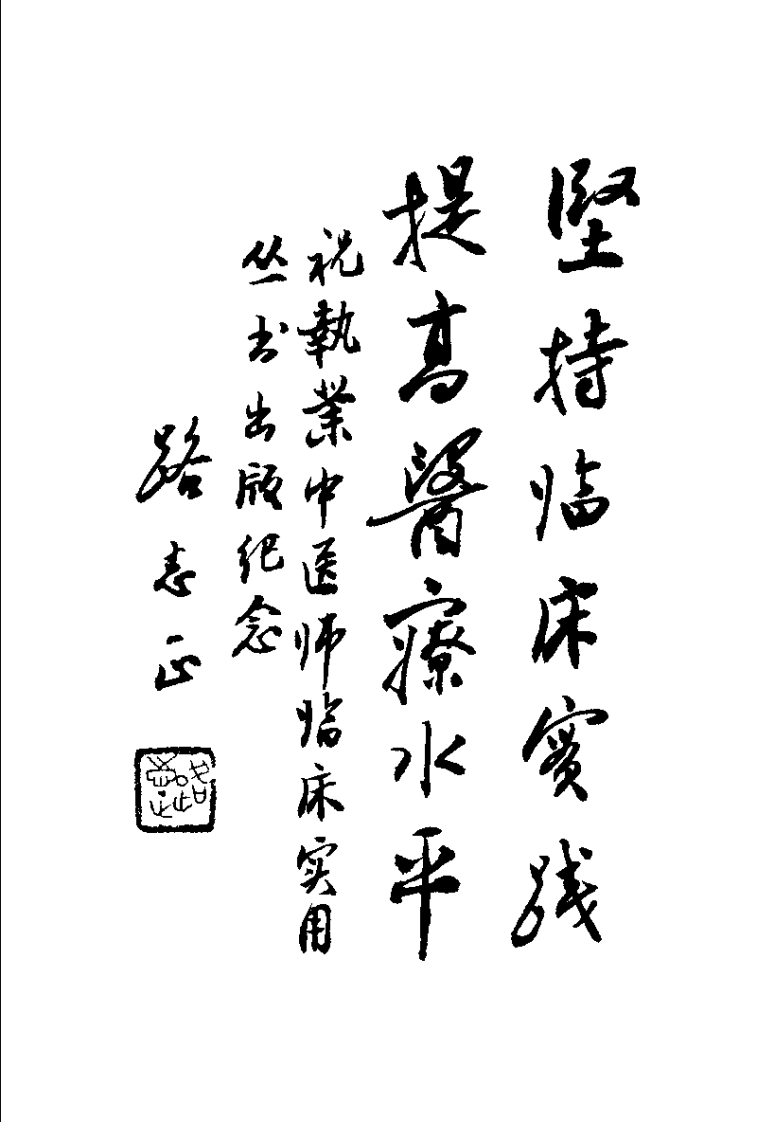 堅持临床实践
提高醫療水平
祝執業中医师临床实用
丛书出版纪念
路志正